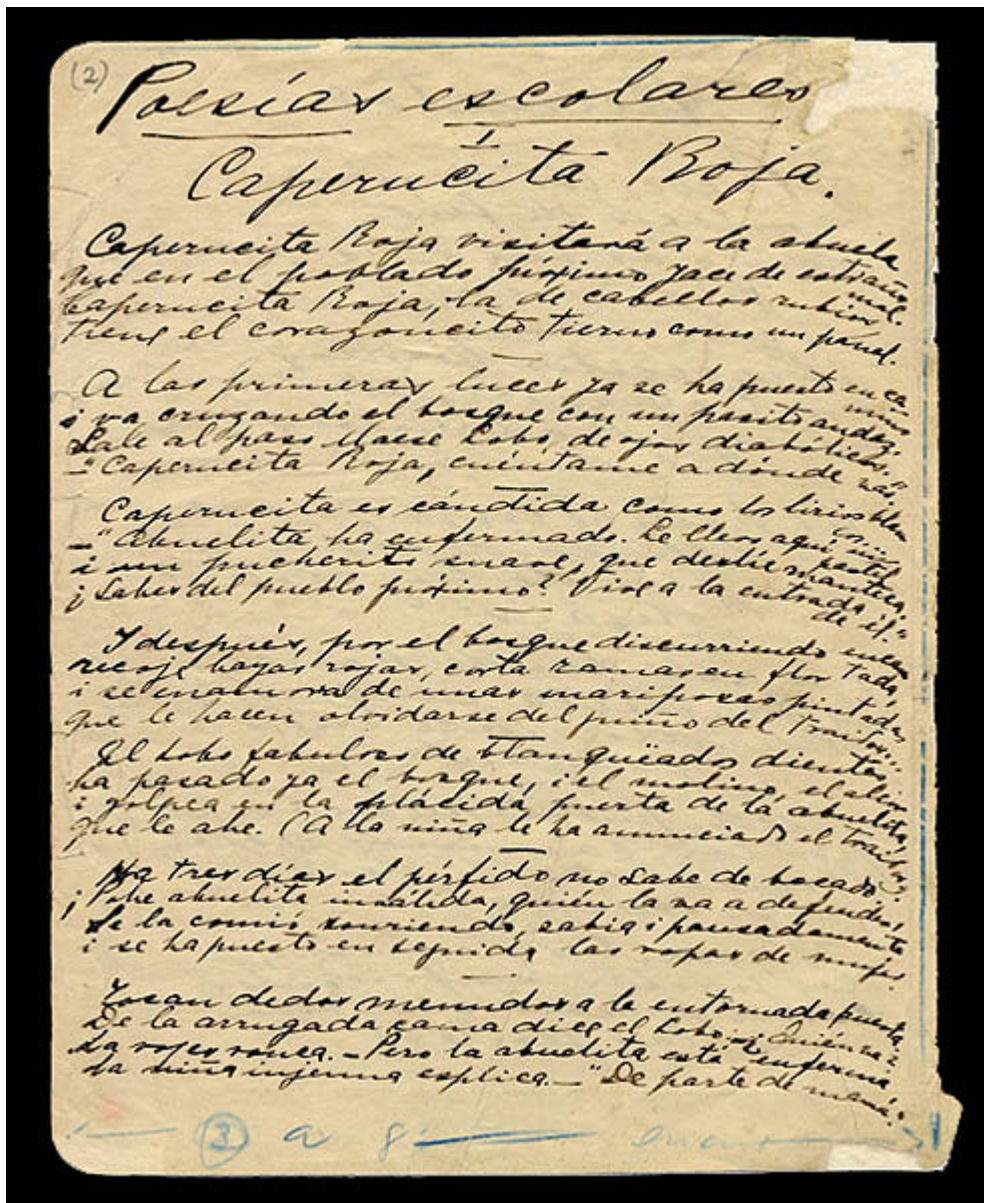 (2)
Poesías escolares
1
Caperucita Roja.
Caperucita Roja visitará a la abuela
que en el poblado próximo yace de estraño mal.
Caperucita Roja, la de cabellos rubios
tiene el corazoncito tierno como un panal.
A las primeras luces ya se ha puesto en camino
i va cruzando el bosque con un pasito audaz.
Sale al paso Maese Lobo, de ojos diabólicos.
—"Caperucita Roja, cuéntame a dónde vas."
Caperucita es cándida como los lirios blancos...
—"Abuelita ha enfermado. Le llevo aquí un pastel
i un pucherito suave, que deslíe manteca.
¿Sabes del pueblo próximo? Vive a la entrada de él."
I después, por el bosque discurriendo encantada,
recoje bayas rojas, corta ramas en flor
i se enamora de unas mariposas pintadas
que le hacen olvidarse del del Traidor...
El Lobo fabuloso de blanquëados dientes
ha pasado ya el bosque, i el molino, el alcor
i golpea en la plácida puerta de la abuelita,
que le abe. (A la niña le ha anunciado el traidor).
Ha tres días el pérfido no sabe de bocado.
¡Pobe abuelita inválida, quién la va a defender,
Se la comió sonriendo, sabia i pausadamente
i se ha puesto en seguida las ropas de mujer.
Tocan dedos menudos a la entornada puerta.
De la arrugada cama dice el Lobo: "¿Quién va?"
La voz es ronca. —Pero la abuelita está enferma
la niña injenua esplica.—"De parte de mamá."
(3) a 8